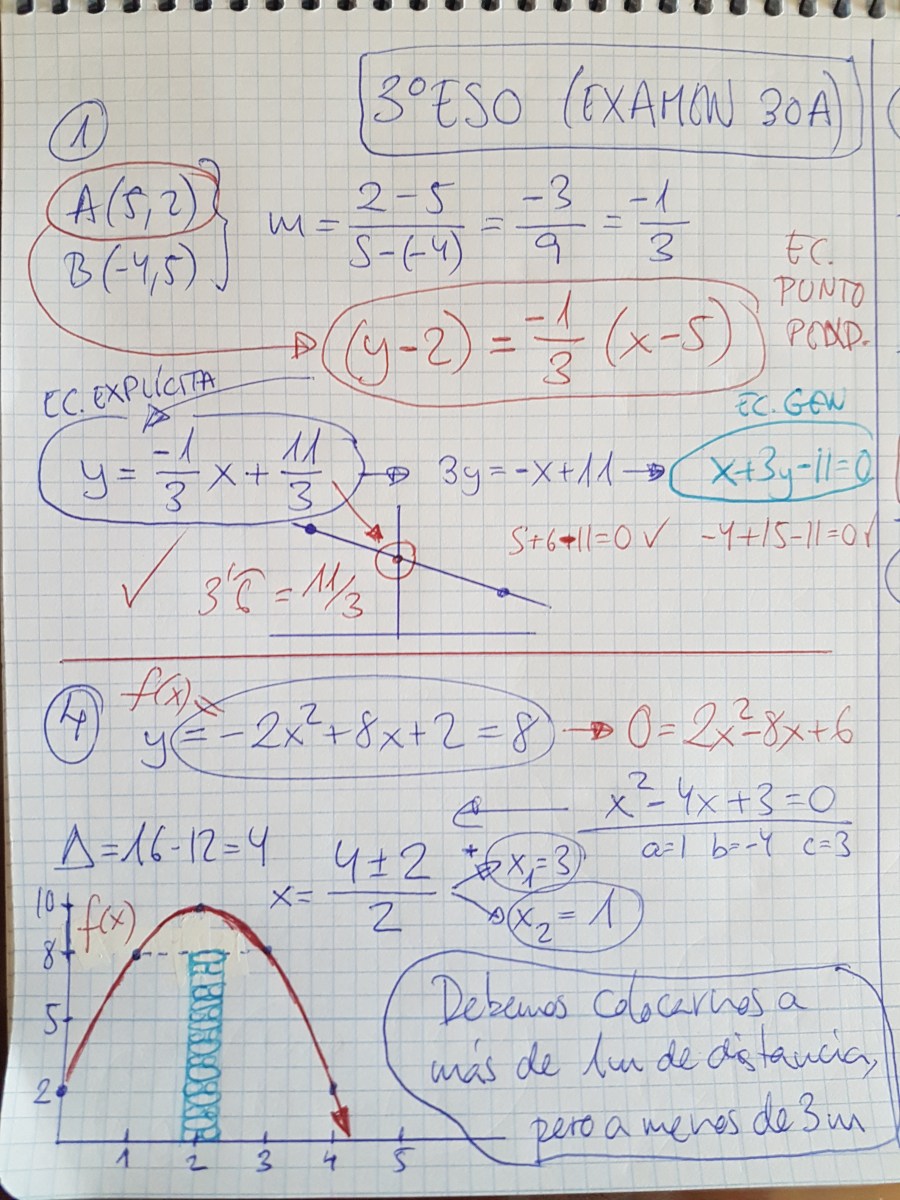 3ºESO (EXAMEN 30A)
1
A(5,2)
B(-4,5)
m = \frac{2-5}{5-(-4)} = \frac{-3}{9} = \frac{-1}{3}
EC.
PUNTO
PEND.
(y-2) = \frac{-1}{3} (x-5)
EC. EXPLÍCITA
EC. GEN
y = \frac{-1}{3} x + \frac{11}{3} → 3y = -x+11 → x+3y-11=0
5+6-11=0 ✓ -4+15-11=0 ✓
✓ 3'6̂ = 11/3
4
f(x)
y = -2x²+8x+2 = 8 → 0 = 2x²-8x+6
x²-4x+3=0
a=1 b=-4 c=3
Δ=16-12=4
x = \frac{4±2}{2}
+ x₁=3
- x₂=1
f(x)
10
8
5
2
1 2 3 4 5
Debemos colocarnos a
más de 1m de distancia,
pero a menos de 3m